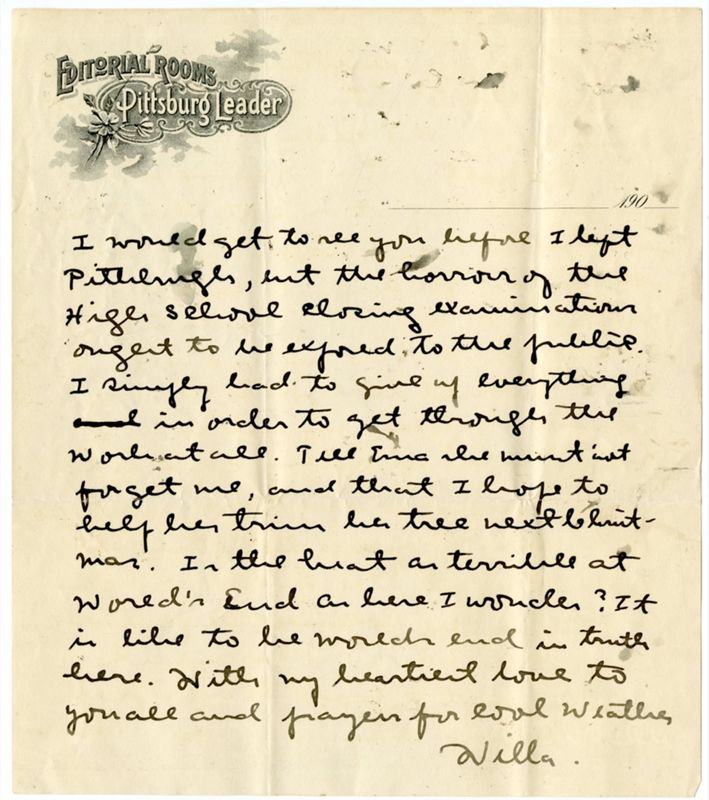 EDITORIAL ROOMS
Pittsburg Leader
190
I would get to see you before I left
Pittsburgh, but the horrour of the
High School closing examinations
ought to be exposed to the public.
I simply had to give up everything
in order to get through the
work at all. Tell Ema she must not
forget me, and that I hope to
help her trim her tree next Christ-
mas. Is the heat as terrible at
World's End as here I wonder? It
is like to be worlds end in truth
here. With my heartiest love to
you all and prayers for cool weather
Willa.